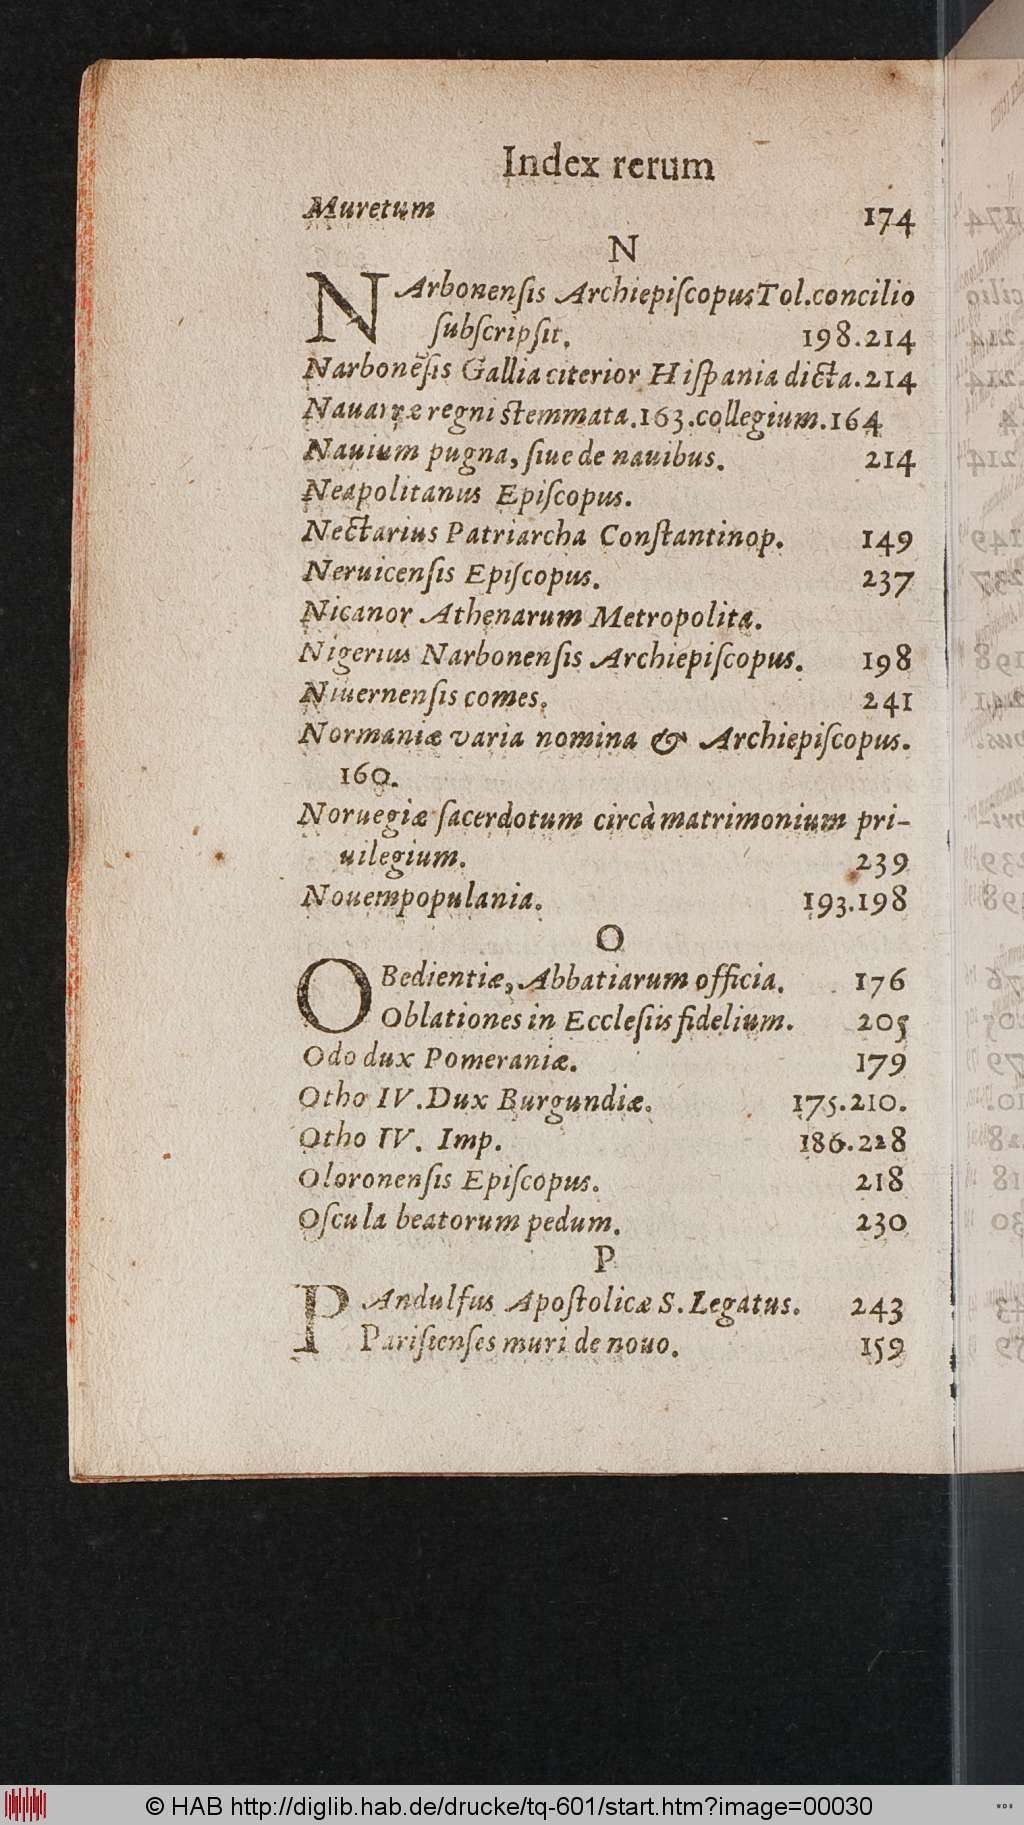 Index rerum
Muretum 174
N
NArbonenſis ArchiepiſcopusTol.concilio
ſubſcripſit. 198.214
Narbonẽſis Gallia citerior Hiſpania dicta.214
Nauarræ regni ſtemmata.163.collegium.164
Nauium pugna, ſiue de nauibus. 214
Neapolitanus Epiſcopus.
Nectarius Patriarcha Conſtantinop. 149
Neruicenſis Epiſcopus. 237
Nicanor Athenarum Metropolita.
Nigerius Narbonenſis Archiepiſcopus. 198
Niuernenſis comes. 241
Normaniæ varia nomina & Archiepiſcopus.
160.
Noruegiæ ſacerdotum circà matrimonium pri-
uilegium. 239
Nouempopulania. 193.198
O
OBedientiæ, Abbatiarum officia. 176
Oblationes in Eccleſiis fidelium. 205
Odo dux Pomeraniæ. 179
Otho IV. Dux Burgundiæ. 175.210.
Otho IV. Imp. 186.228
Oloronenſis Epiſcopus. 218
Oſcula beatorum pedum. 230
P
PAndulfus Apoſtolicæ S. Legatus. 243
Pariſienſes muri de nouo. 159
© HAB http://diglib.hab.de/drucke/tq-601/start.htm?image=00030